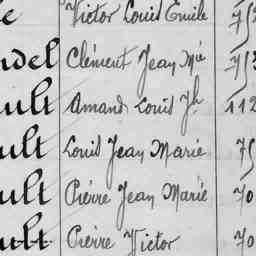 e Victor Louis Emile 75
ndel Clément Jean Mie 753
ult Amand Louis Jh 112
ult Louis Jean Marie 75
ult Pierre Jean Marie 70
ult Pierre Victor 70